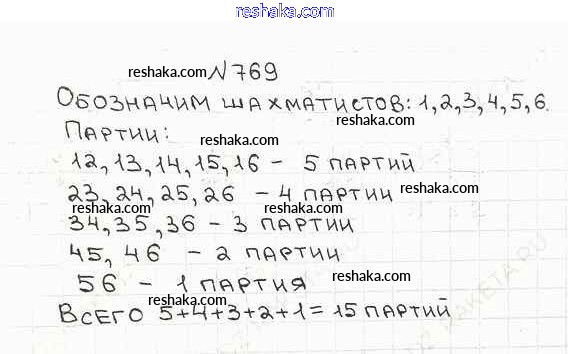 reshaka.com
reshaka.com
№769
reshaka.com
Обозначим шахматистов: 1,2,3,4,5,6.
reshaka.com
Партии:
reshaka.com
12, 13, 14, 15, 16 - 5 партий
reshaka.com
23, 24, 25, 26 - 4 партии
reshaka.com
34, 35, 36 - 3 партии
reshaka.com
45, 46 - 2 партии
56 - 1 партия
reshaka.com
reshaka.com
Всего 5+4+3+2+1=15 партий
reshaka.com